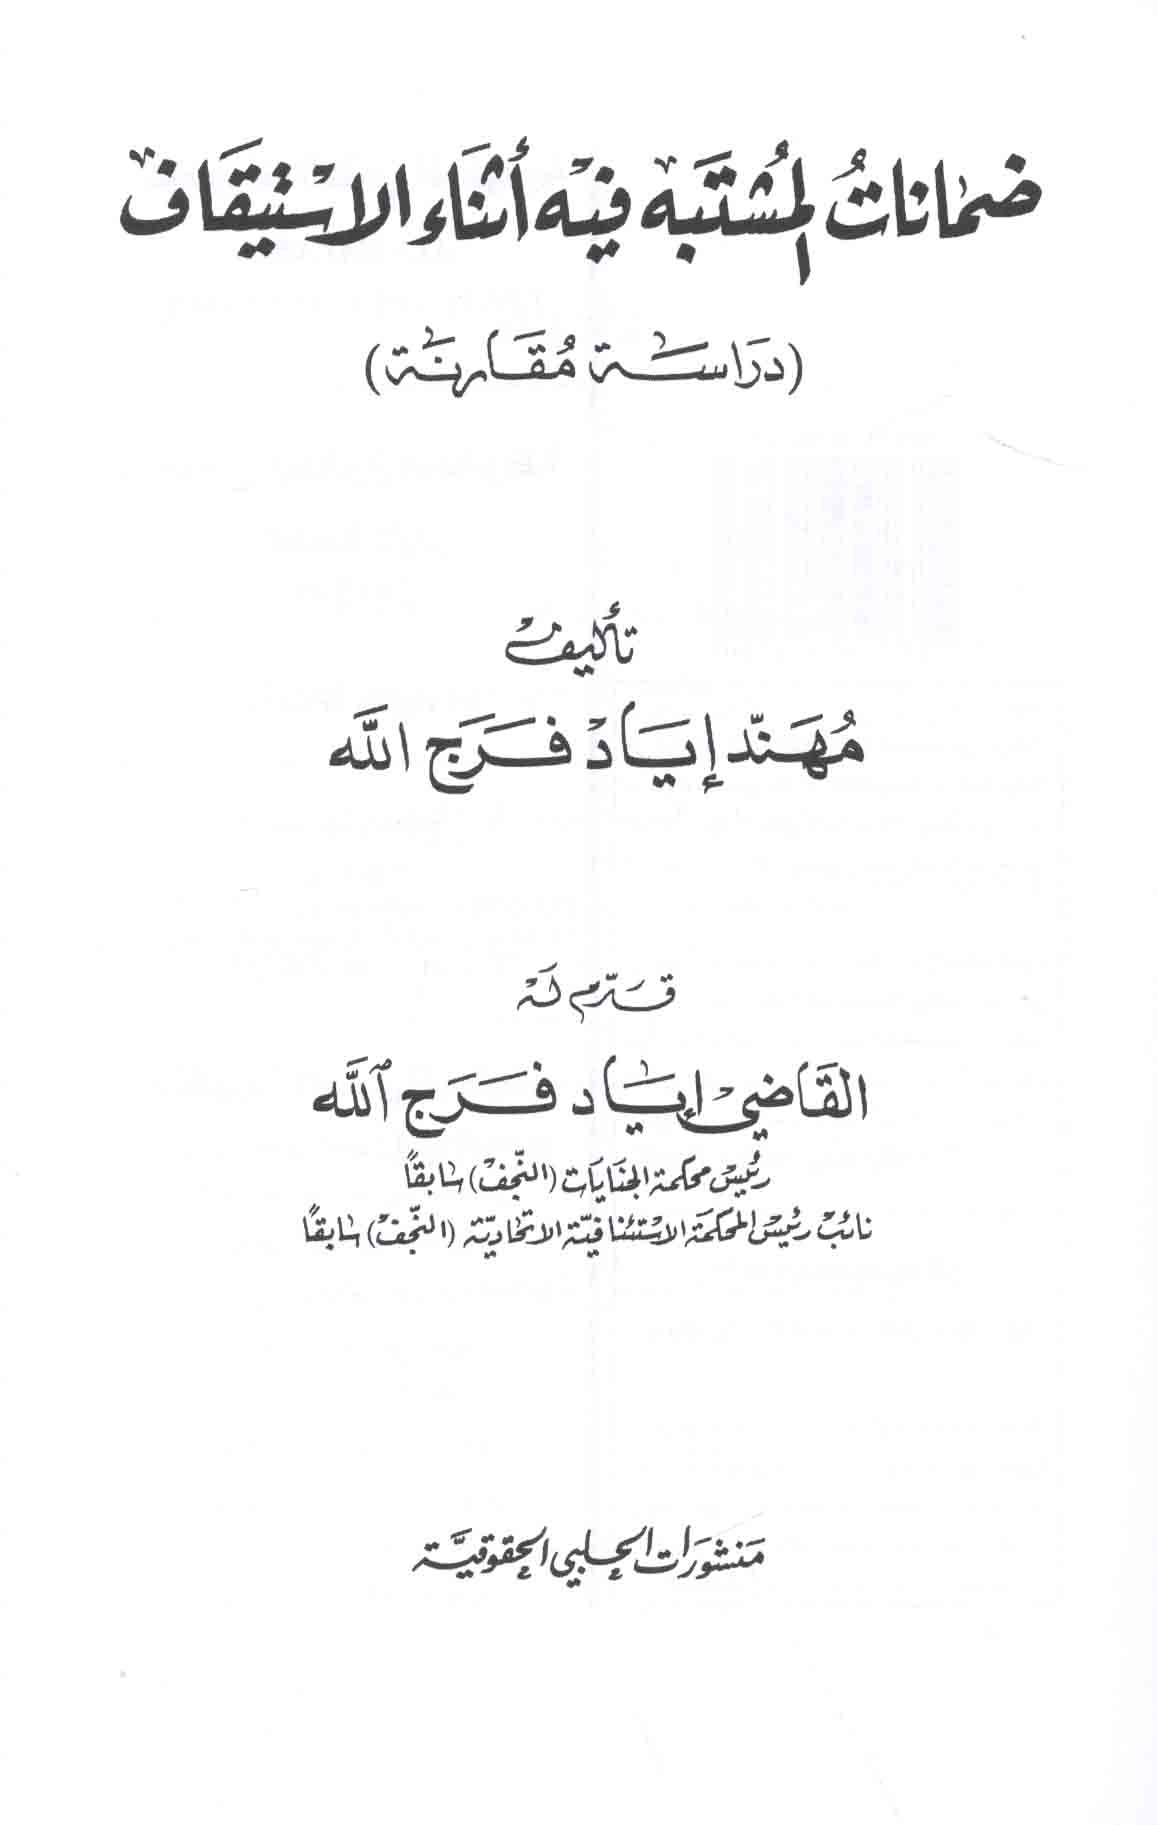 ضمانات المُشتَبه فيه أثناء الاستيقاف
(دَرَاسَة مُقَارنَة)
تأليف
مُهَنّد إيَاد فَرَج اللَّه
قَدّم لَهُ
القَاضي إيَاد فَرَج اللَّه
رئيس محكمة الجنايات (النّجف) سَابقًا
نائب رئيس المحكمَة الاستئنافيّة الاتحاديّة (النّجف) سَابقًا
مَنشورَات الحلبي الحقوقيَّة